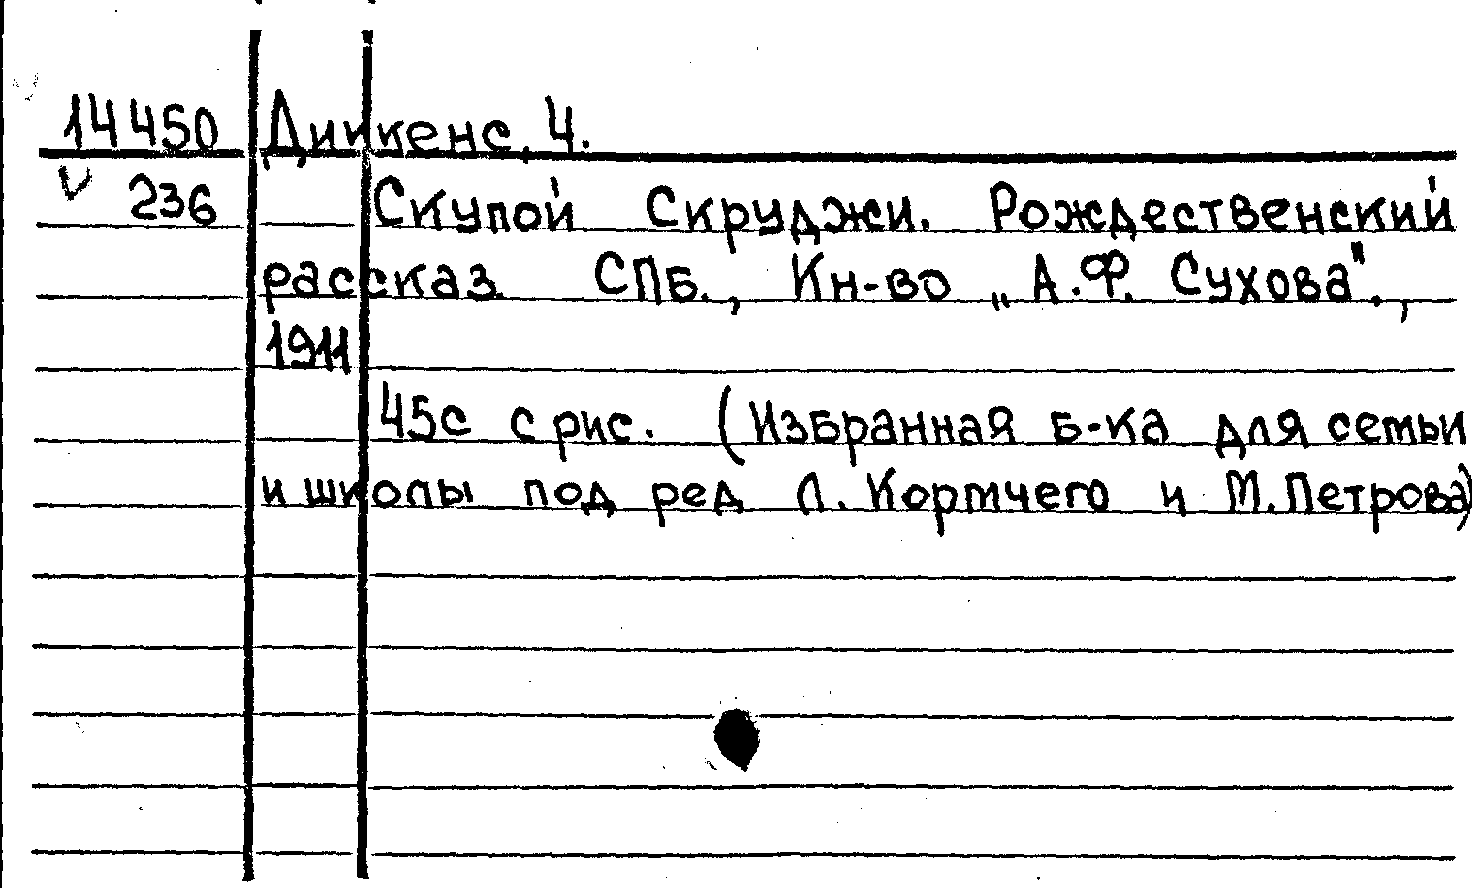 14450 Диккенс, Ч.
V 236 Скупой Скруджи. Рождественский
рассказ. СПБ., Кн-во „А.Ф. Сухова".,
1911
45с с рис. (Избранная б-ка для семьи
и школы под ред Л. Кормчего и М. Петрова)